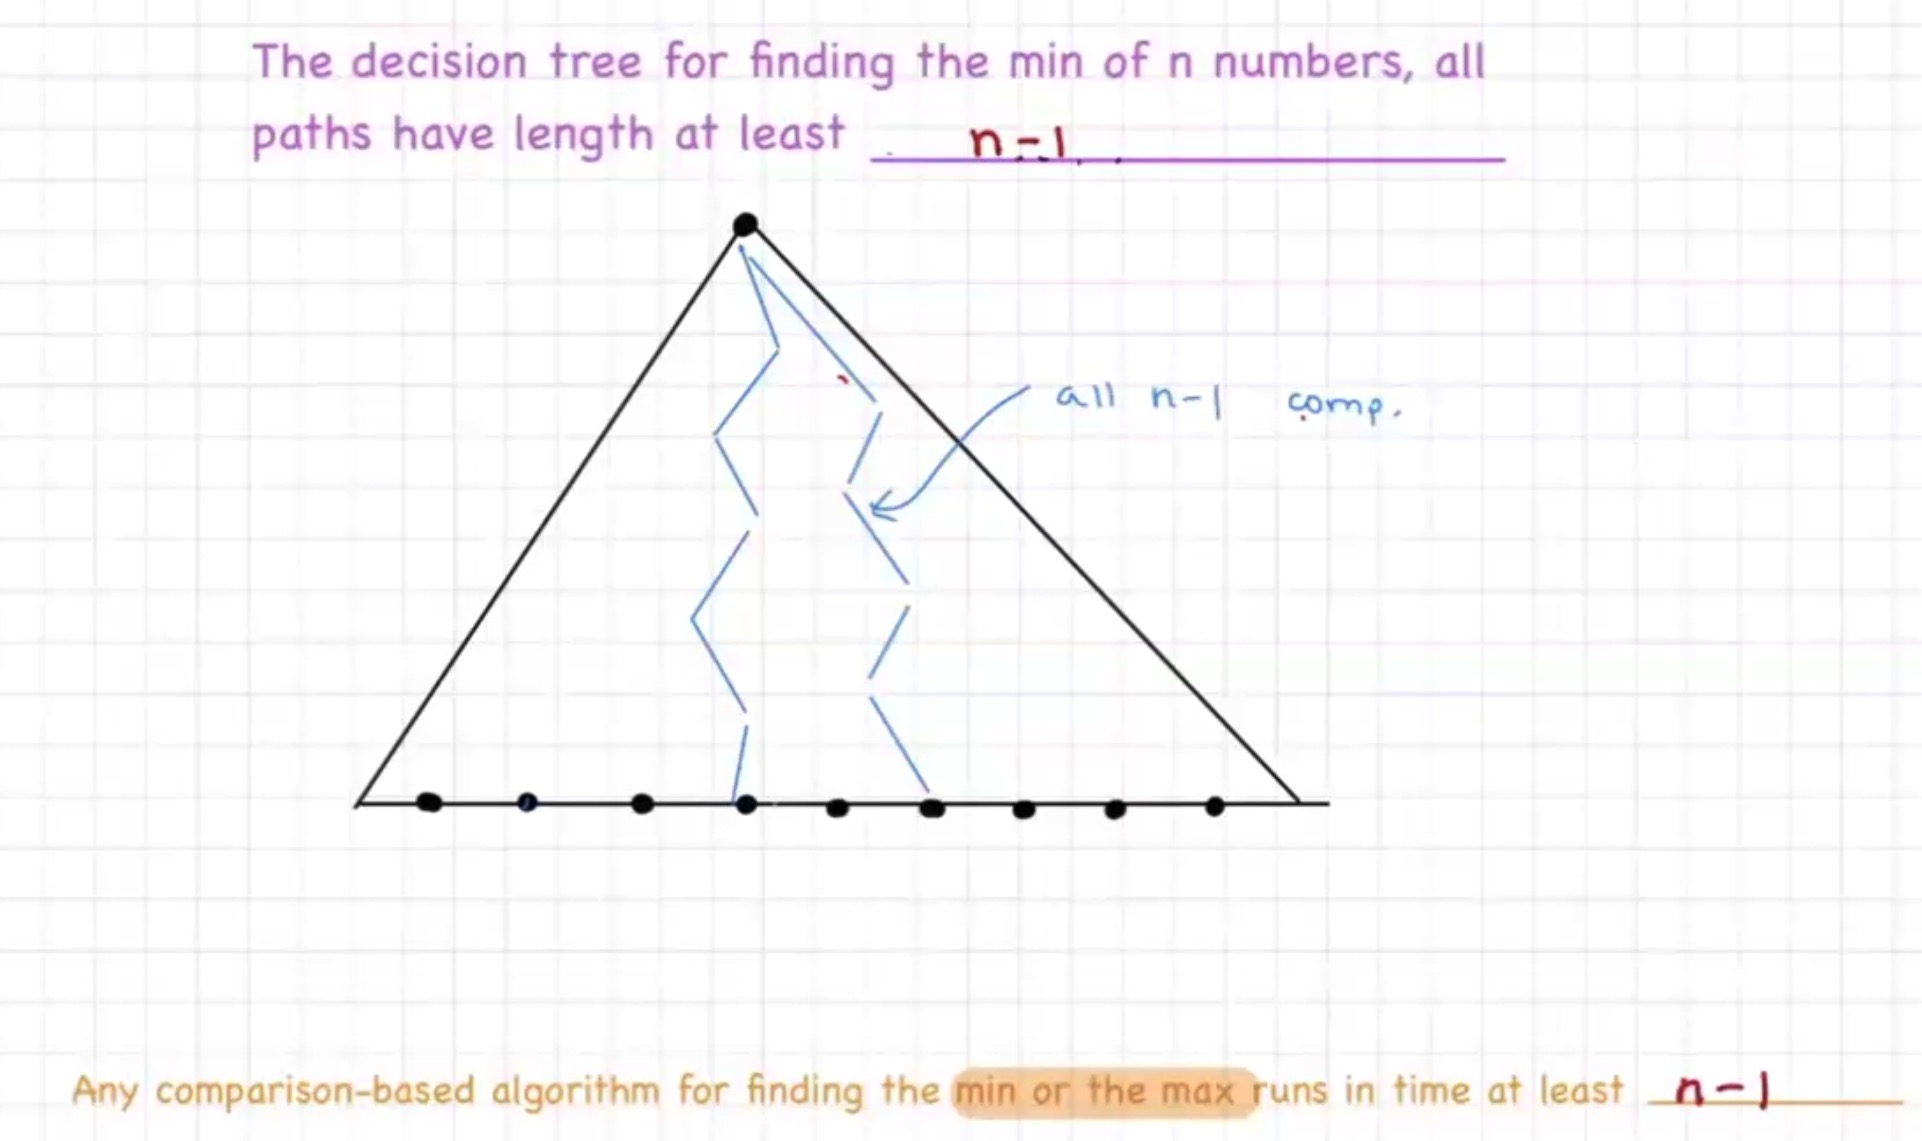 The decision tree for finding the min of n numbers, all
paths have length at least n-1
all n-1 comp.
Any comparison-based algorithm for finding the min or the max runs in time at least n-1